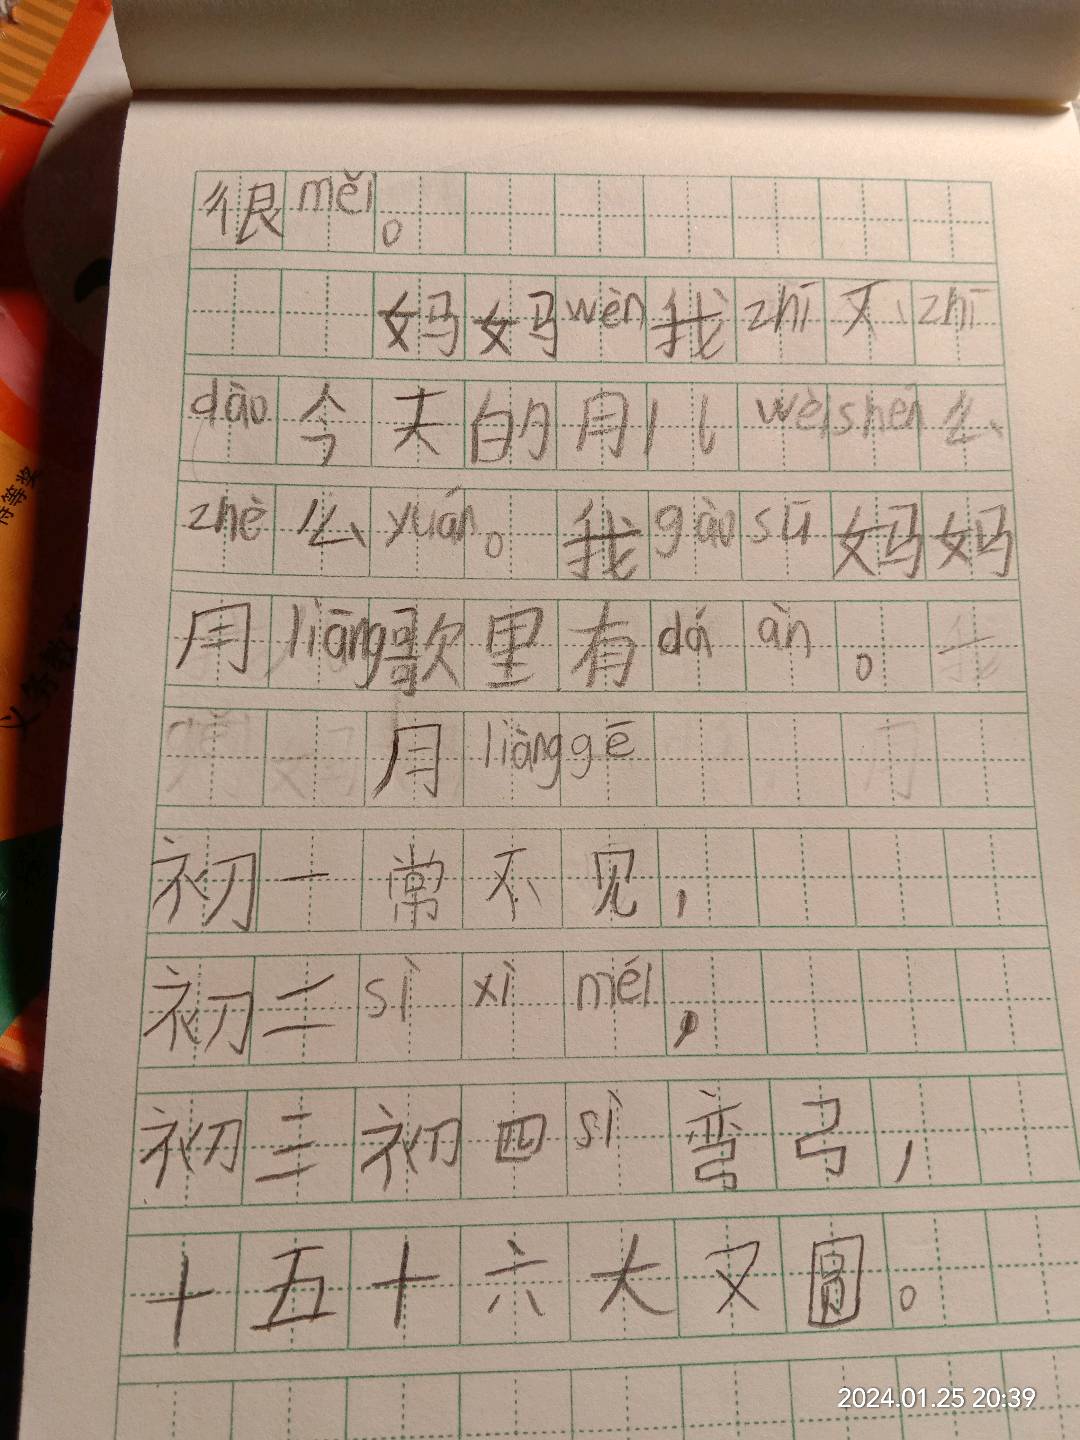 很měi。
妈妈wèn我zhī不zhī
dào今天的月儿wèishén么
zhè么yuán。我gàosū妈妈
月liāng歌里有dá àn。
月liànggē
初一常不见，
初二sì xì méi，
初三初四sì弯弓，
十五十六大又圆。
2024.01.25 20:39